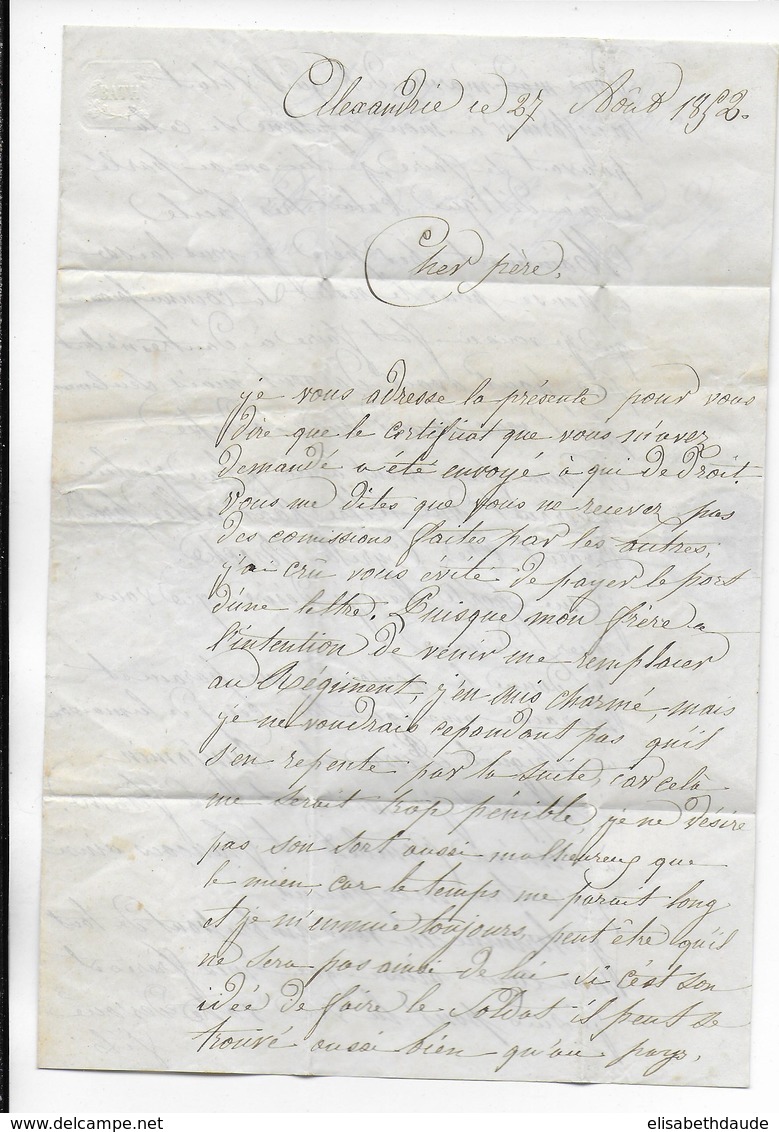 Alexandrie le 27 Août 1852.
Cher père,
je vous adresse la présente pour vous
dire que le certificat que vous m'avez
demandé a été envoyé à qui de Droit.
Vous me dites que vous ne recevez pas
des comissions faites par les autres,
j'ai crû vous évité de payer le port
d'une lettre. Puisque mon frère a
l'intention de venir me remplacer
au Régiment, j'en suis charmé, mais
je ne voudrais cependant pas qu'il
s'en repente par la suite, car celà
me serait trop pénible, je ne désire
pas son sort aussi malheureux que
le mien, car le temps me parait long
et je m'ennuie toujours, peut être qu'il
ne sera pas ainsi de lui si c'est son
idée de faire le Soldat il peut se
trouvé aussi bien qu'au pays.
elisabethdaude